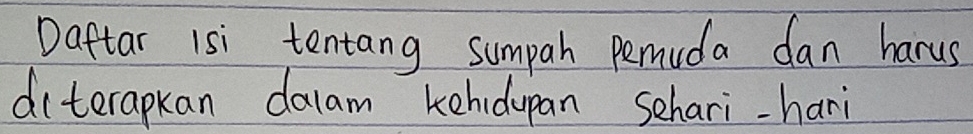 Daftar isi tentang sumpah pemuda dan harus
diterapkan dalam kehidupan sehari-hari